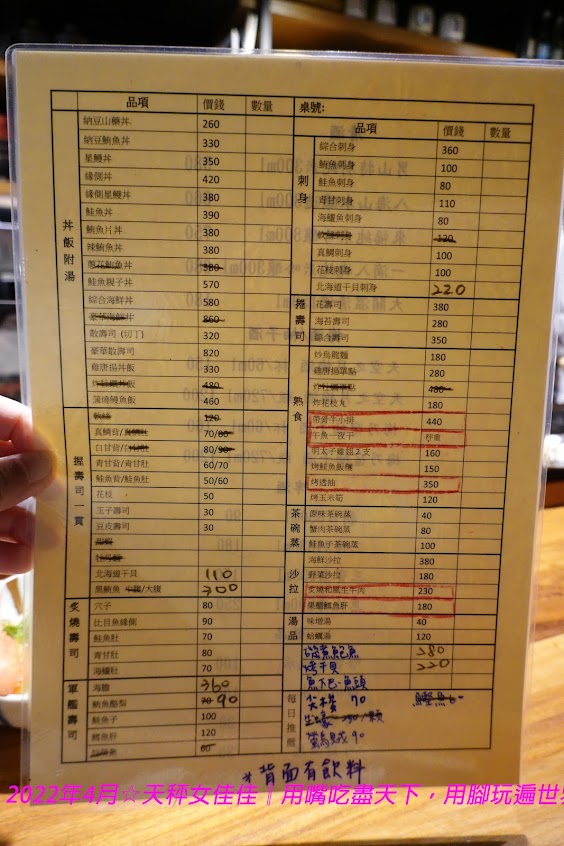 品項 價錢 數量
丼飯附湯
納豆山藥丼 260
納豆鮪魚丼 330
星鰻丼 350
緣側丼 420
緣側星鰻丼 380
鮭魚丼 390
鮪魚片丼 380
辣鮪魚丼 380
蔥花鮪魚丼 380
鮭魚親子丼 570
綜合海鮮丼 580
豪華海鮮丼 860
散壽司 (切丁) 320
豪華散壽司 820
雞唐揚丼飯 330
炸牡蠣丼飯 480
蒲燒鰻魚飯 460
握壽司一貫
軟絲 120
真鯛背/真鯛肚 70/80
白甘背/白甘肚 80/90
青甘背/青甘肚 60/70
鮭魚背/鮭魚肚 50/60
花枝 50
玉子壽司 30
豆皮壽司 30
甜蝦
牡丹蝦
北海道干貝 110
黑鮪魚 中腹/大腹 300
炙燒壽司
穴子 80
比目魚緣側 90
鮭魚肚 70
青甘肚 80
海鱺肚 70
軍艦壽司
海膽 360
鮪魚酪梨 70 90
鮭魚子 100
鱈魚肝 120
60
桌號:
品項 價錢 數量
刺身
綜合刺身 360
鮪魚刺身 100
鮭魚刺身 80
青甘刺身 110
海鱺魚刺身 80
軟絲刺身 120
真鯛刺身 100
花枝刺身 100
北海道干貝刺身 220
捲壽司
花壽司 380
海苔壽司 280
綜合壽司 350
熟食
炒烏龍麵 180
雞唐揚單點 280
炸牡蠣單點 480
炸花枝丸 180
帶骨牛小排 440
午魚一夜干 秤重
明太子雞翅2支 160
烤鮭魚飯糰 150
烤透抽 350
烤玉米筍 120
茶碗蒸
原味茶碗蒸 40
蟹肉茶碗蒸 80
鮭魚子茶碗蒸 100
沙拉
海鮮沙拉 380
野菜沙拉 180
炙燒和風生牛肉 230
果醋鱈魚肝 180
湯品
味增湯 40
蛤蠣湯 120
磯煮鮑魚 280
烤干貝 220
魚下巴·魚頭
每日推薦
尖梭 70
鰹魚60
生蠔 290/顆
螢烏賊 90
*背面有飲料
2022年4月☆天秤女佳佳‖用嘴吃盡天下，用腳玩遍世界